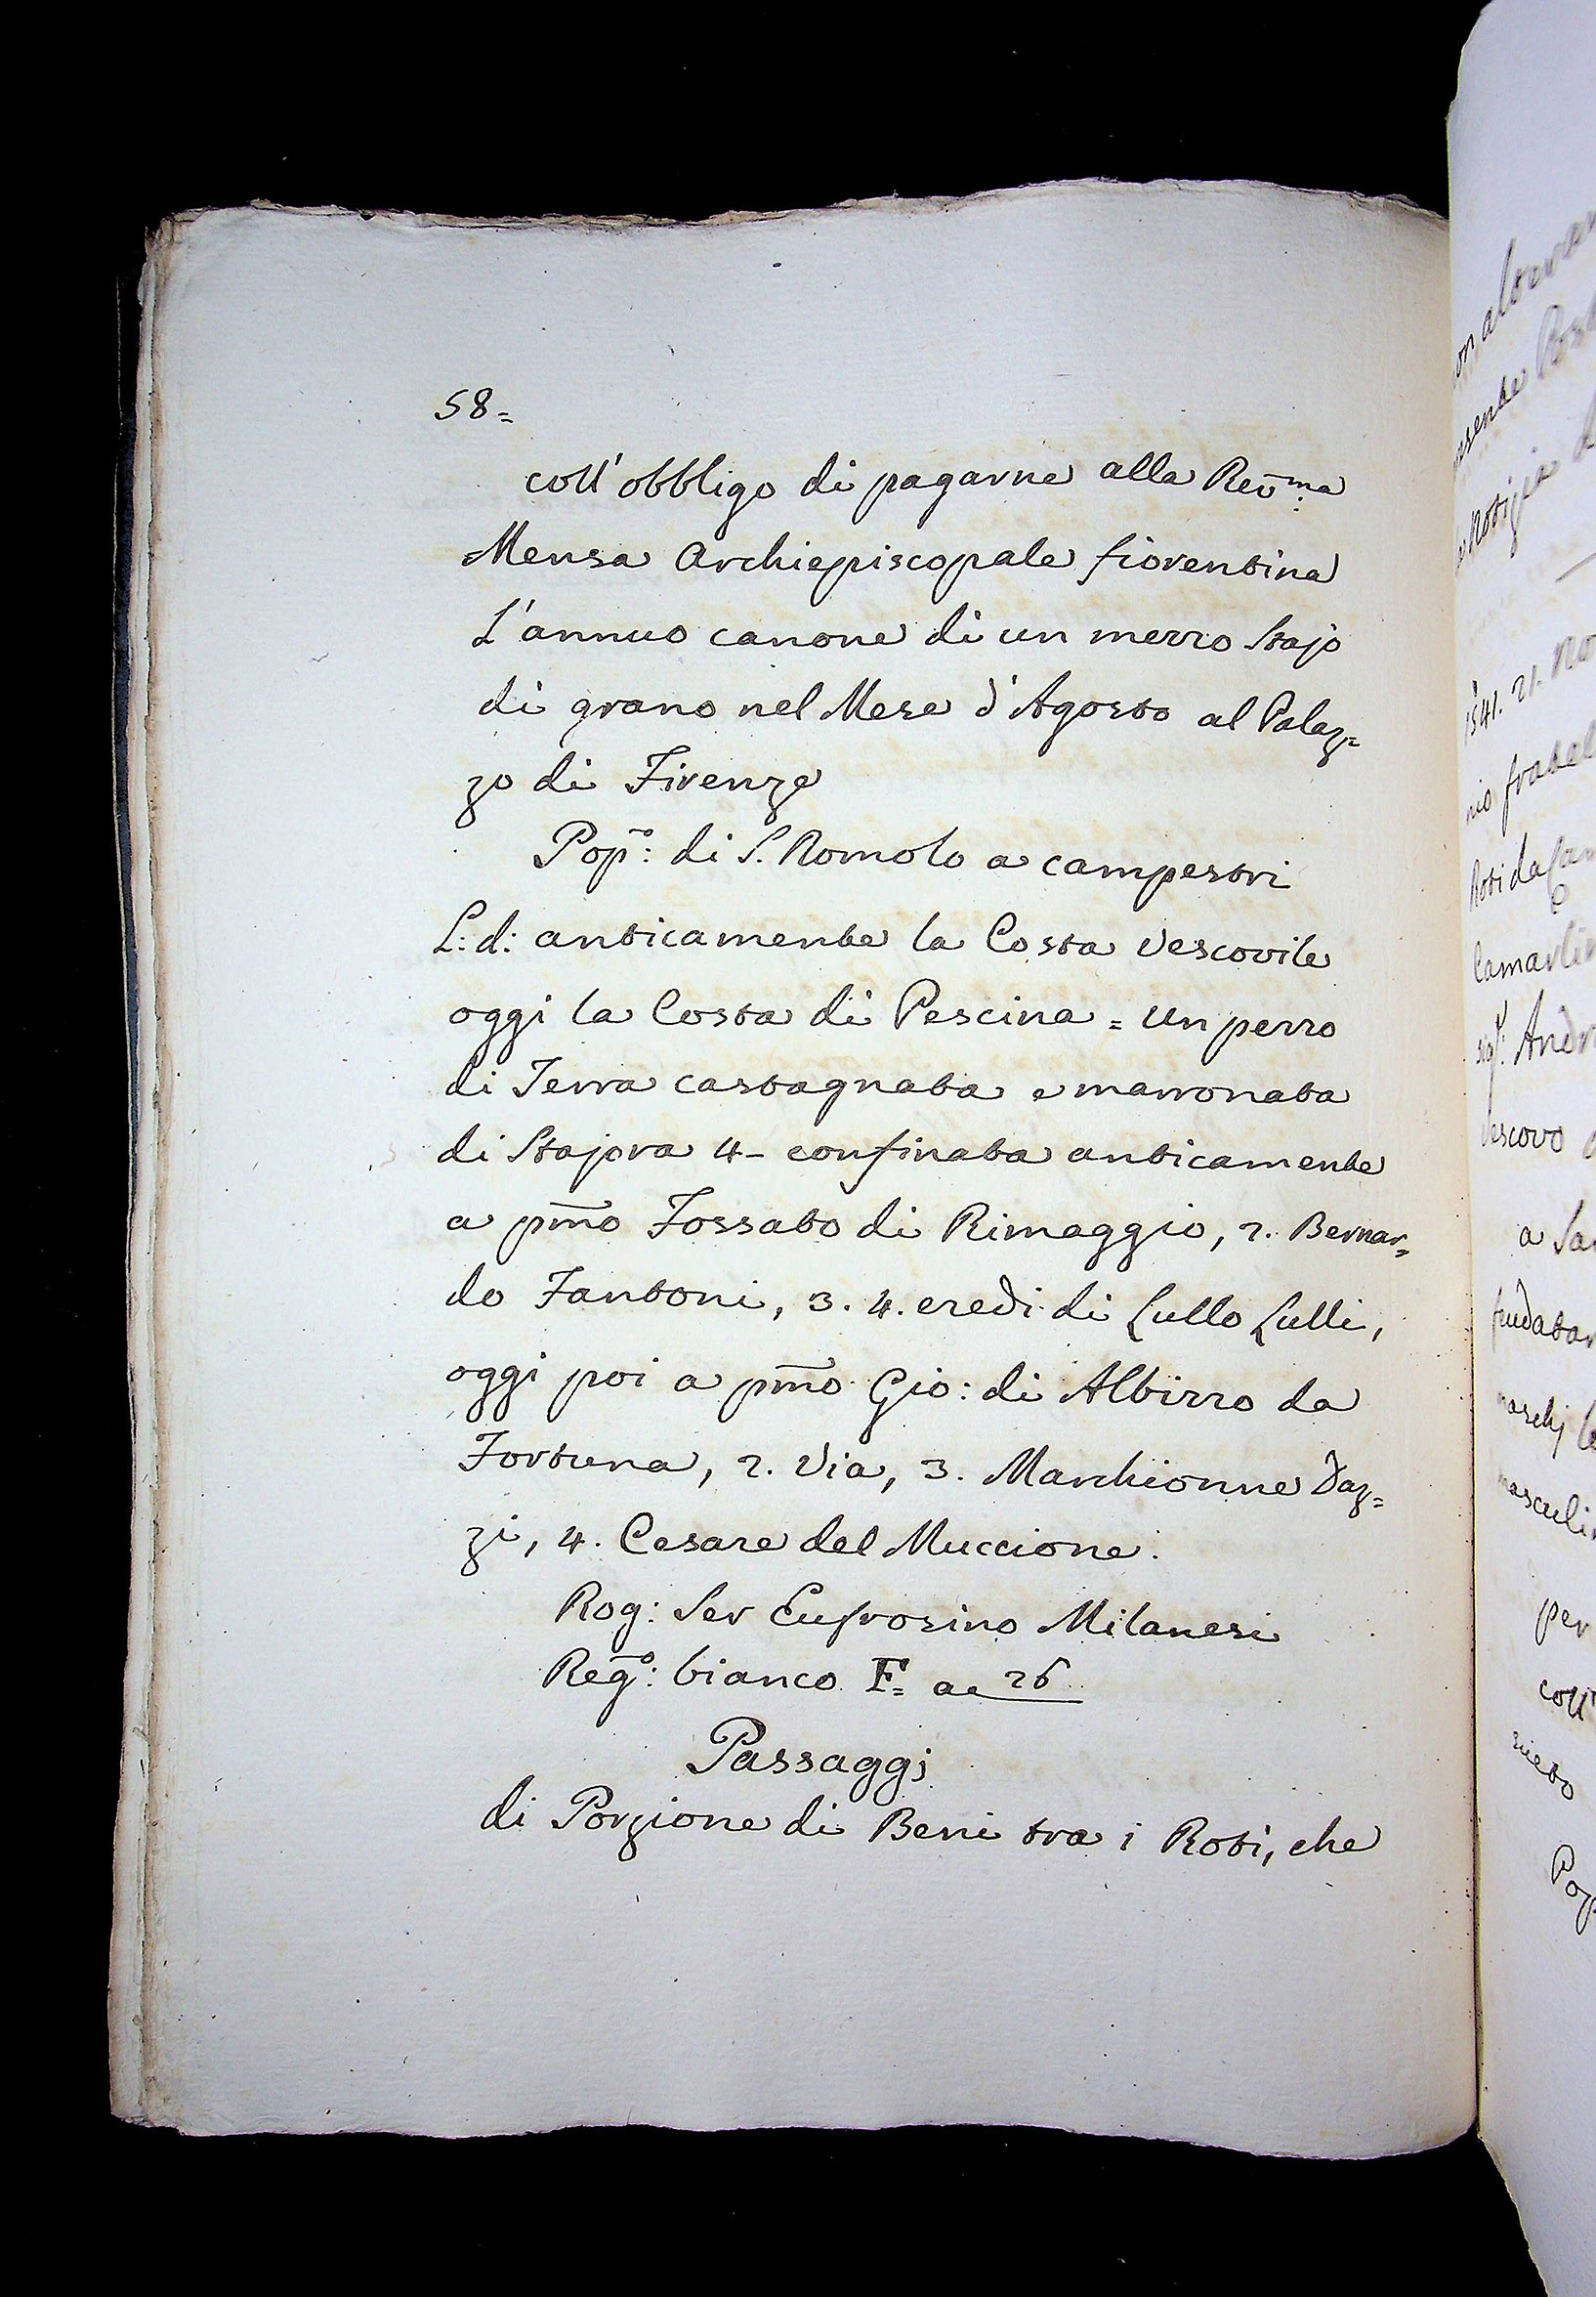 58=
coll'obbligo di pagarne alla Rev̄ma
Mensa Archiepiscopale fiorentina
L'annuo canone di un mezzo Stajo
di grano nel Mese d'Agosto al Palaz=
zo di Firenze
Pop̄o: di S. Romolo a campestri
L: d: anticamente la Costa Vescovile
oggi la Costa di Pescina = Un pezzo
di Terra castagnata e marronata
di Stajora 4- confinata anticamente
a p̄mo Fossato di Rimaggio, 2. Bernar=
do Fantoni, 3. 4. eredi di Lullo Lulli,
oggi poi a p̄mo Gio: di Albizzo da
Fortuna, 2. Via, 3. Marchionne Daz=
zi, 4. Cesare del Muccione.
Rog: Ser Eufrosino Milanesi
Reg̃o: bianco F= ae 26
Passaggj
di Porzione di Beni tra i Roti, che
1541. 21. No
Vescovo
a
per
coll'